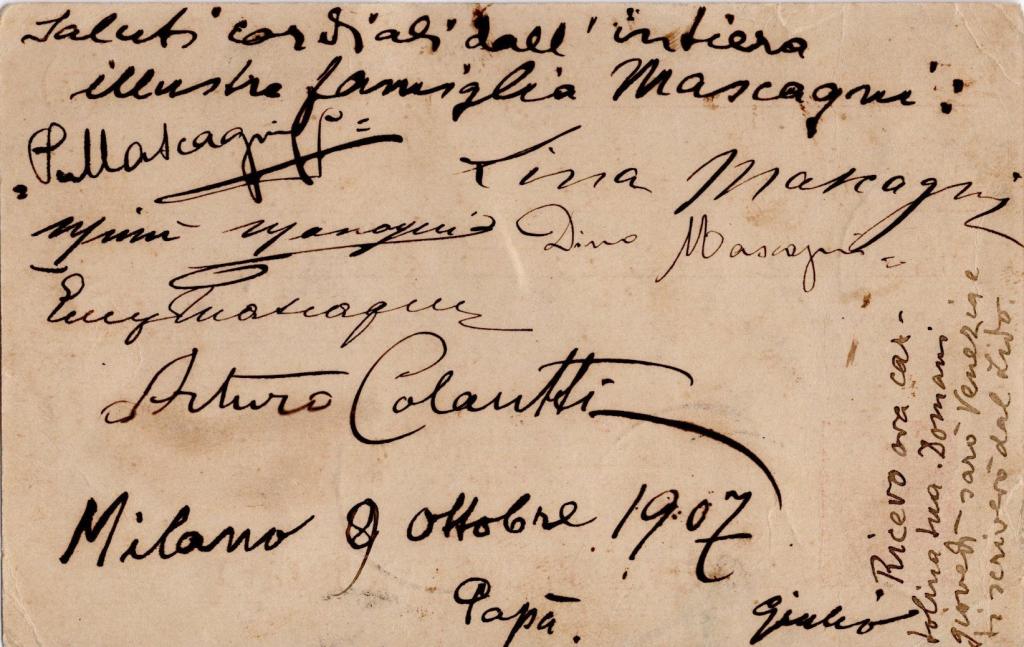 Saluti cordiali dall' intiera
illustre famiglia Mascagni:
P. Mascagni =
Lina Mascagni
Mimì Mascagni
Dino Mascagni =
Emy Mascagni
Arturo Colautti
Milano 9 ottobre 1907
Papà.
Giulio
Ricevo ora car-
tolina tua. Domani
giovedì sarò Venezia e
ti scriverò dal Lido.